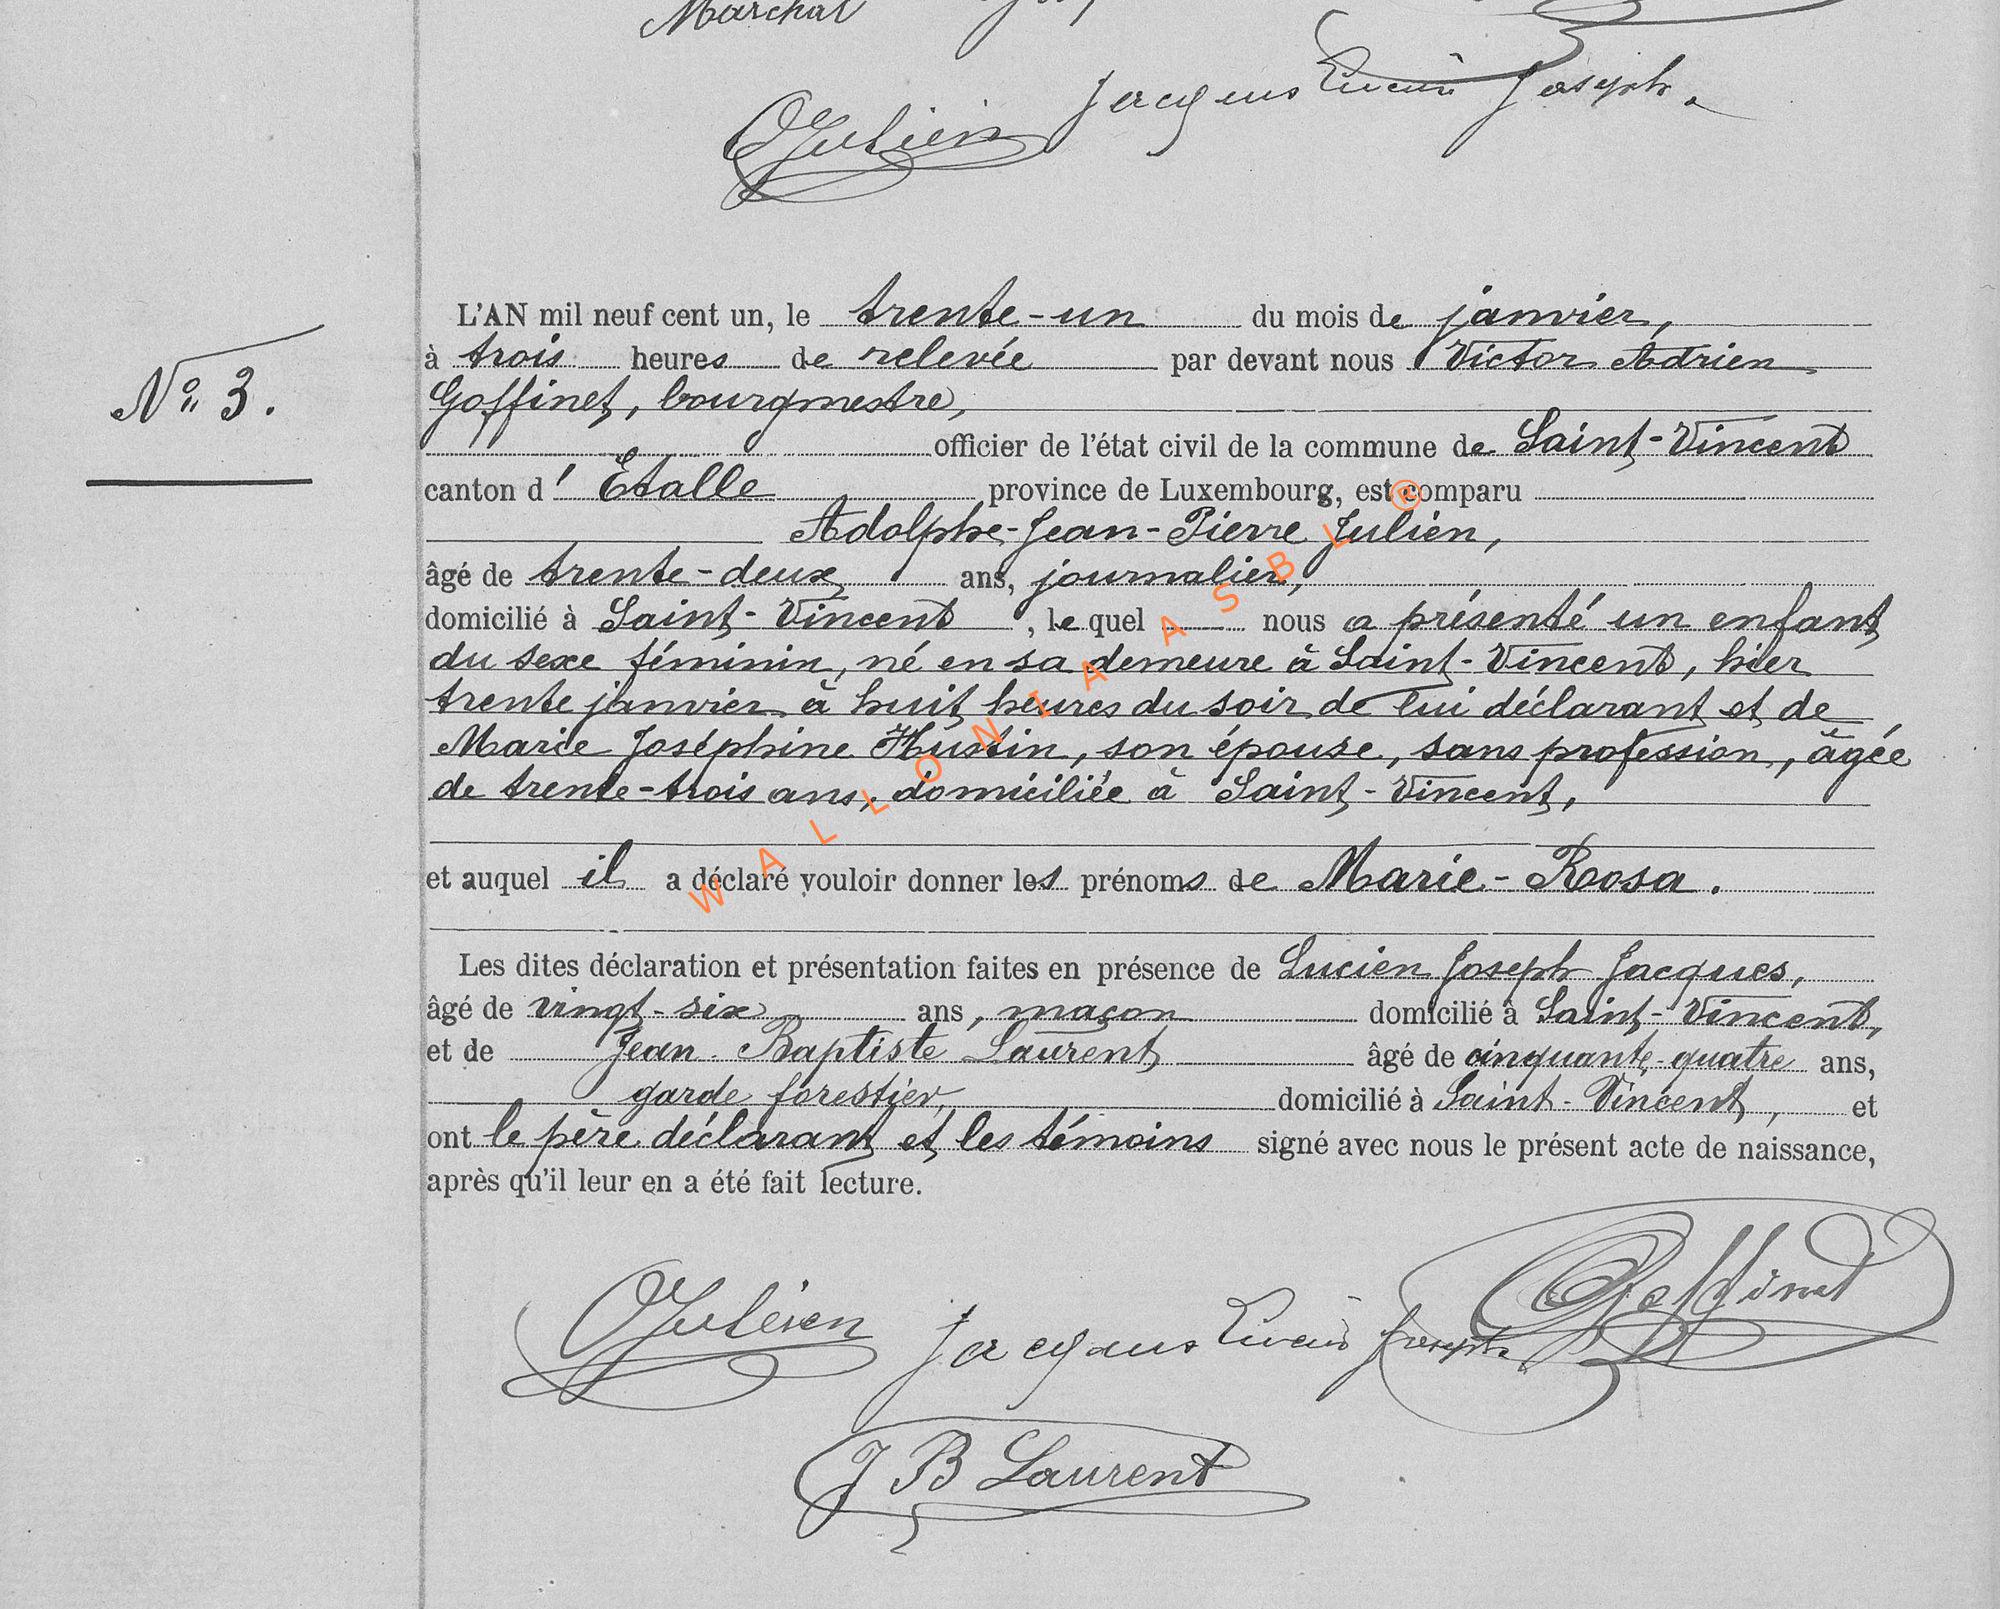 Marchal
Jacques Lucien Joseph.
Julien
L'AN mil neuf cent un, le trente-un du mois de janvier,
à trois heures de relevée par devant nous Victor Adrien
Nº 3.
Goffinet, bourgmestre,
officier de l'état civil de la commune de Saint-Vincent
canton d'Etalle province de Luxembourg, est comparu
Adolphe-Jean-Pierre Julien,
âgé de trente-deux ans, journalier,
domicilié à Saint-Vincent, lequel nous a présenté un enfant
du sexe féminin, né en sa demeure à Saint-Vincent, hier
trente janvier à huit heures du soir de lui déclarant et de
Marie Joséphine Hustin, son épouse, sans profession, âgée
de trente-trois ans, domiciliée à Saint-Vincent,
et auquel il a déclaré vouloir donner les prénoms de Marie-Rosa.
Les dites déclaration et présentation faites en présence de Lucien Joseph Jacques,
âgé de vingt-six ans, maçon domicilié à Saint-Vincent,
et de Jean-Baptiste Laurent âgé de cinquante-quatre ans,
garde forestier, domicilié à Saint-Vincent, et
ont le père déclarant et les témoins signé avec nous le présent acte de naissance,
après qu'il leur en a été fait lecture.
Julien Jacques Lucien Joseph Goffinet
J B Laurent
WALLONIA ASBL ®